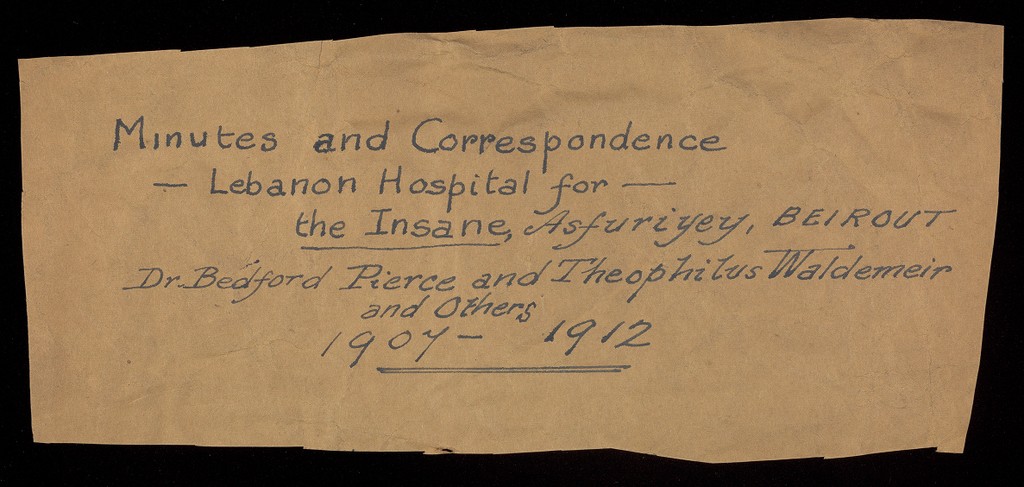 Minutes and Correspondence
— Lebanon Hospital for —
the Insane, Asfuriyey, BEIROUT
Dr. Bedford Pierce and Theophilus Waldemeir
and Others
1907 - 1912